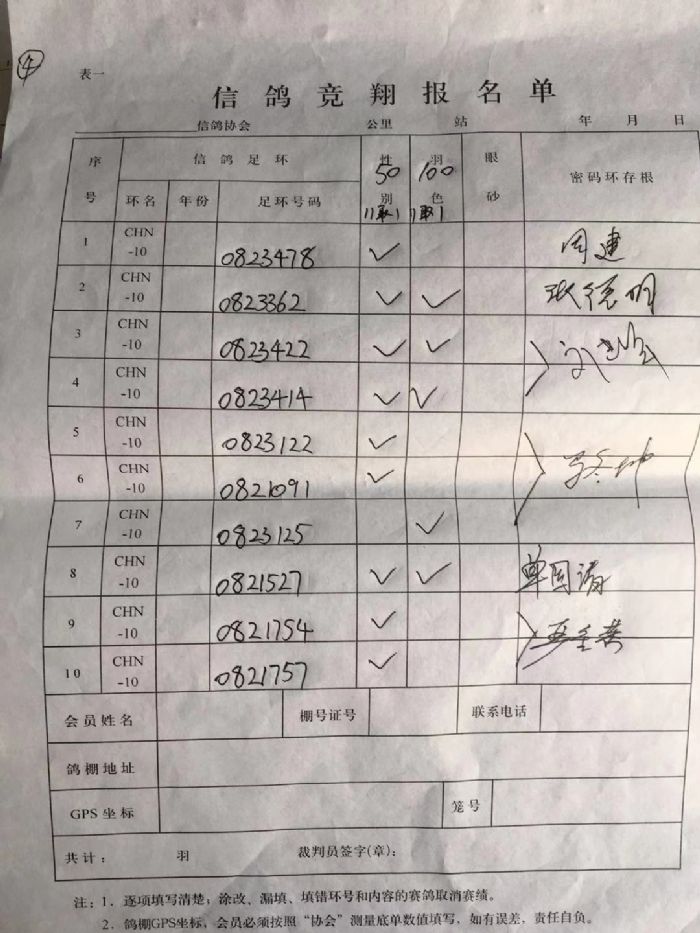 ④
表一
信鸽竞翔报名单
信鸽协会 公里 站 年 月 日
序号 信鸽足环 性别 羽色 眼砂 密码环存根
50 100
环名 年份 足环号码
11取1 11取1
1 CHN-10 0823478 ✓ 周建
2 CHN-10 0823362 ✓ ✓ 张德明
3 CHN-10 0823422 ✓ ✓
4 CHN-10 0823414 ✓ ✓
5 CHN-10 0823122 ✓
6 CHN-10 0821091 ✓
7 CHN-10 0823125 ✓
8 CHN-10 0821527 ✓ ✓ 单国清
9 CHN-10 0821754 ✓
10 CHN-10 0821757 ✓
会员姓名 棚号证号 联系电话
鸽棚地址
GPS坐标 笼号
共计: 羽 裁判员签字(章):
注:1、逐项填写清楚;涂改、漏填、填错环号和内容的赛鸽取消赛绩。
2、鸽棚GPS坐标、会员必须按照“协会”测量底单数值填写,如有误差,责任自负。